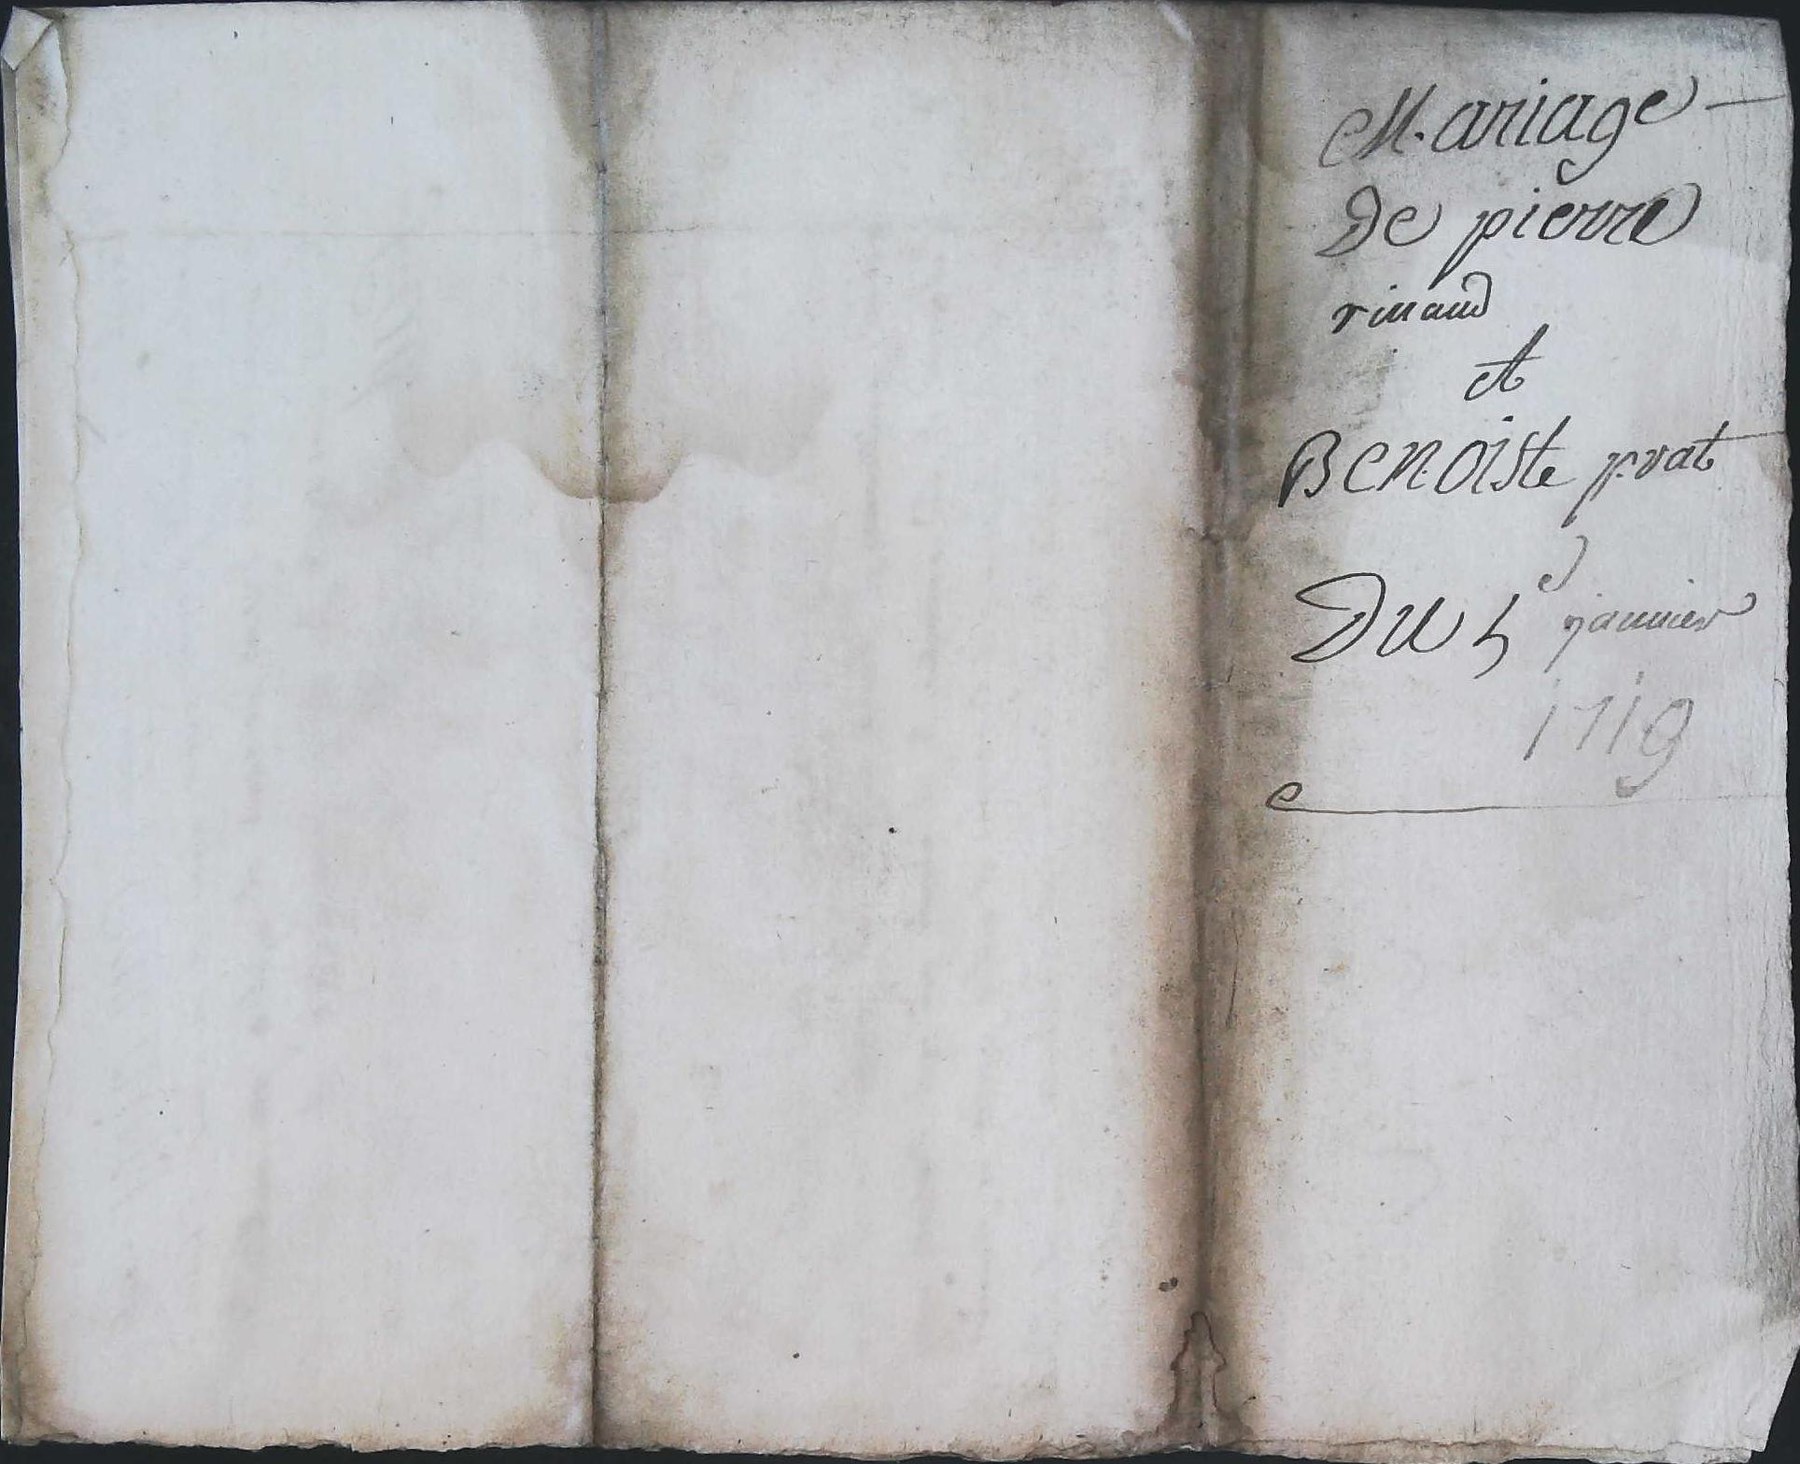 Mariage
De pierre
rinaud
et
Benoiste prat
Du 5e janvier
1719